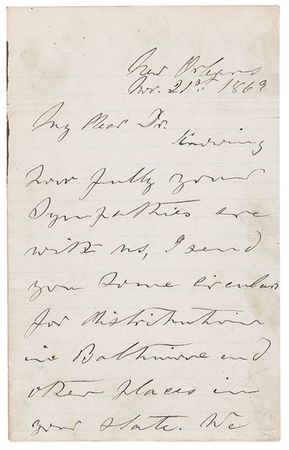 New Orleans
Nov. 21st 1869
My Dear Dr.
Knowing
how fully your
Sympathies are
with us, I send
you some circulars
for distribution
in Baltimore and
other places in
your state. We